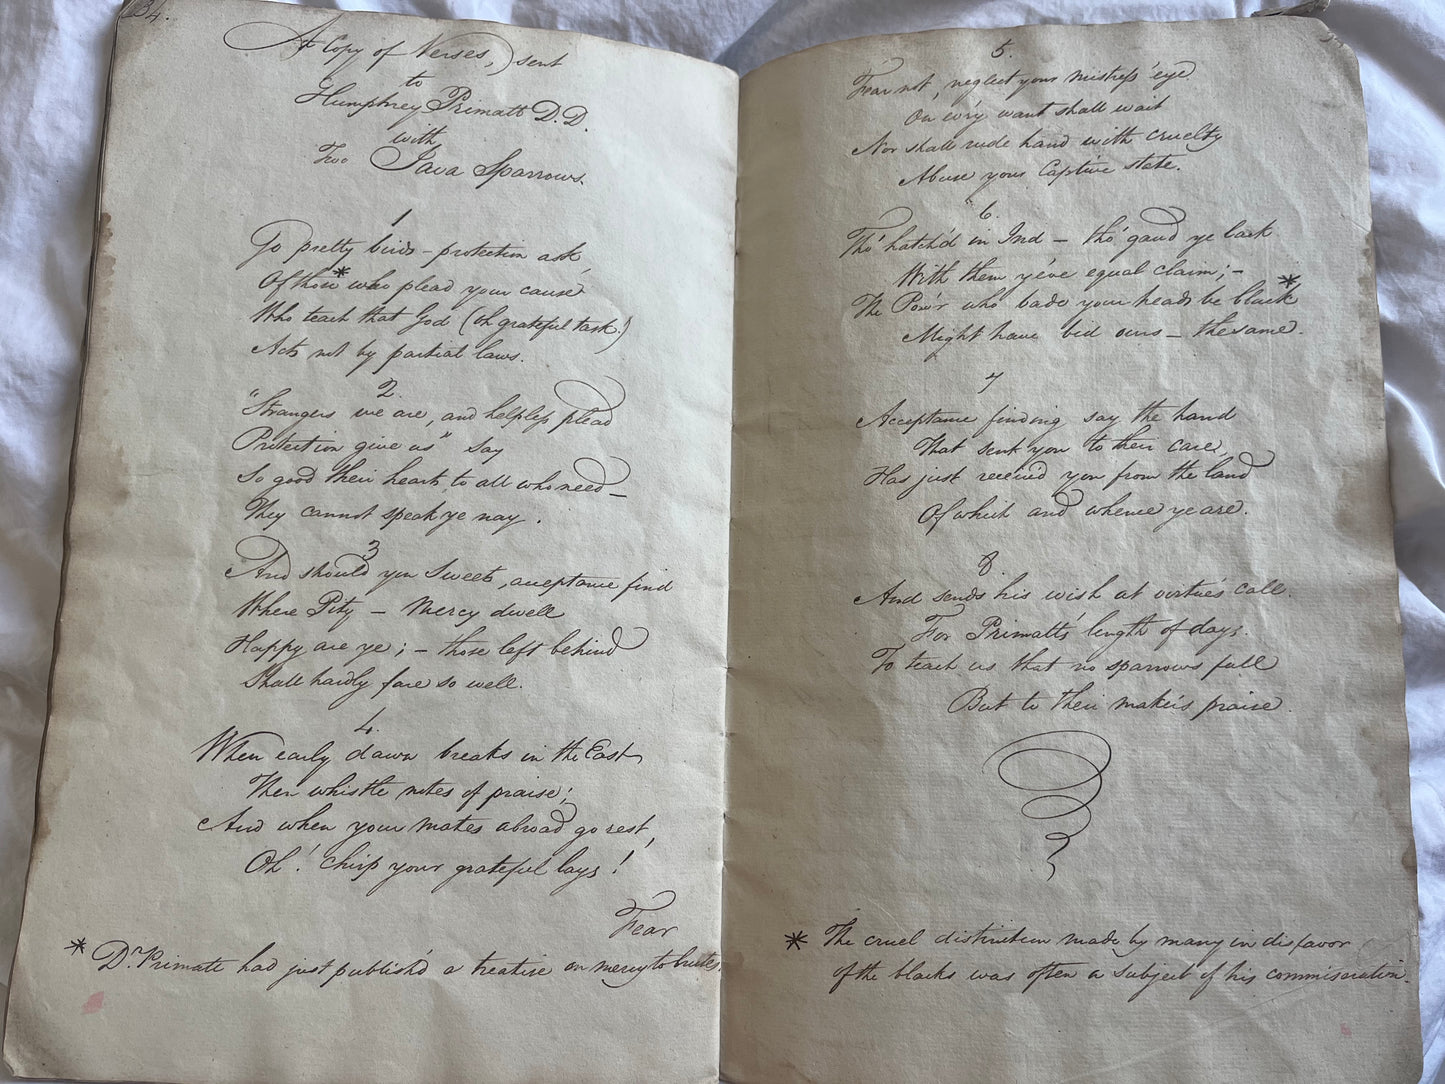 134.
A Copy of Verses, sent
to
Humphrey Primatt D.D.
with
Two Java Sparrows.
1
Go pretty birds – protection ask,
Of those* who plead your cause
Who teach that God (oh grateful task!)
Acts not by partial laws.
2.
"Strangers we are, and helpless plead
Protection give us" say
So good their hearts, to all who need –
They cannot speak ye nay.
3
And should you Sweets, acceptance find
Where Pity – Mercy dwell
Happy are ye; – those left behind
Shall hardly fare so well.
4.
When early dawn breaks in the East,
Then whistle notes of praise;
And when your mates abroad go rest,
Oh! chirp your grateful lays!
Fear
* Dr. Primatt had just publish'd a treatise on mercy to brutes.
5.
Fear not, neglect your mistress' eye
On ev'ry want shall wait
Nor shall rude hand with cruelty
Abuse your Captive state.
6.
Tho' hatch'd in Ind – tho' gaud ye lack
With them ye've equal claim; –
The Pow'r who bade your heads be black*
Might have bid ours – the same.
7
Acceptance finding say the hand
That sent you to their care,
Has just receiv'd you from the land
Of which and whence ye are.
8
And sends his wish at virtue's call.
For Primatt's length of days.
To teach us that no sparrows fall
But to their maker's praise.
* The cruel distinction made by many in disfavor
of the blacks was often a subject of his commiseration.